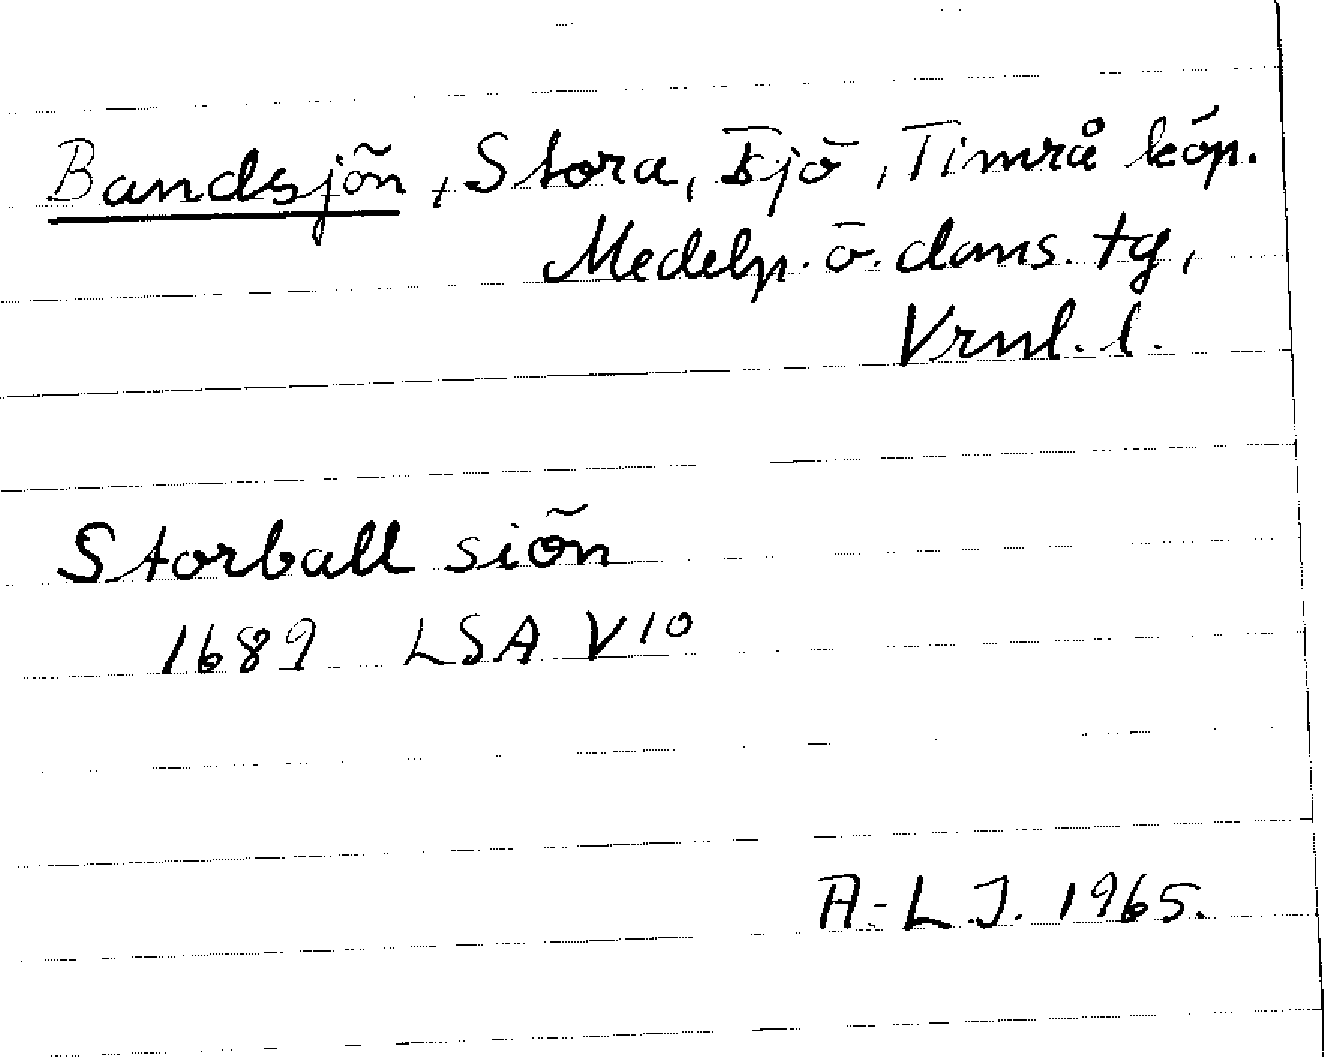 Bandsjön, Stora, sjö, Timrå köp.
Medelp. ö. doms. tg,
Vrnl. l.
Storball siön
1689 LSA V10
A.-L.J. 1965.